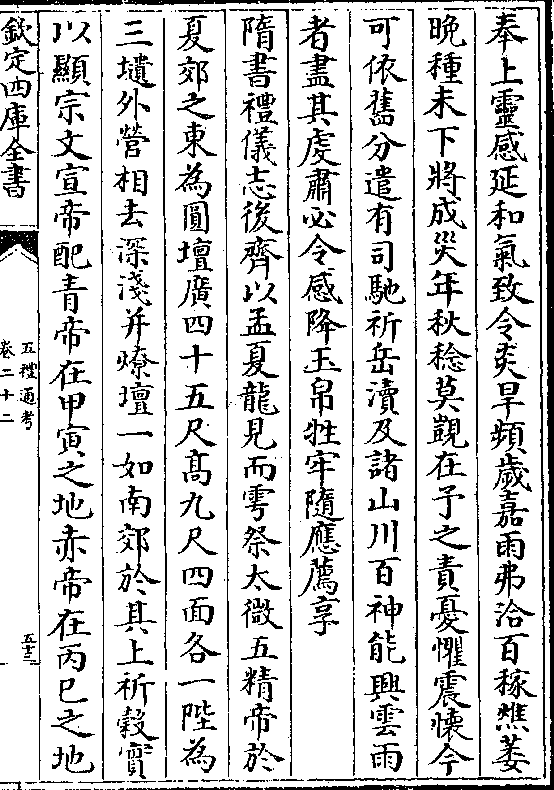 奉上靈感延和氣致令炎旱頻歲嘉雨弗洽百稼燋萎
晩種未下將成災年秋稔莫覬在予之責憂懼震懷今
可依舊分遣有司馳祈岳瀆及諸山川百神能興雲雨
者盡其虔肅必令感降玉帛牲牢隨應薦享
隋書禮儀志後齊以孟夏龍見而雩祭太微五精帝於
夏郊之東為圓壇廣四十五尺髙九尺四面各一陛為
三壝外營相去深淺并燎壇一如南郊於其上祈穀實
以顯宗文宣帝配青帝在甲寅之地赤帝在丙巳之地
欽定四庫全書
五禮通考
卷二十二
五十三